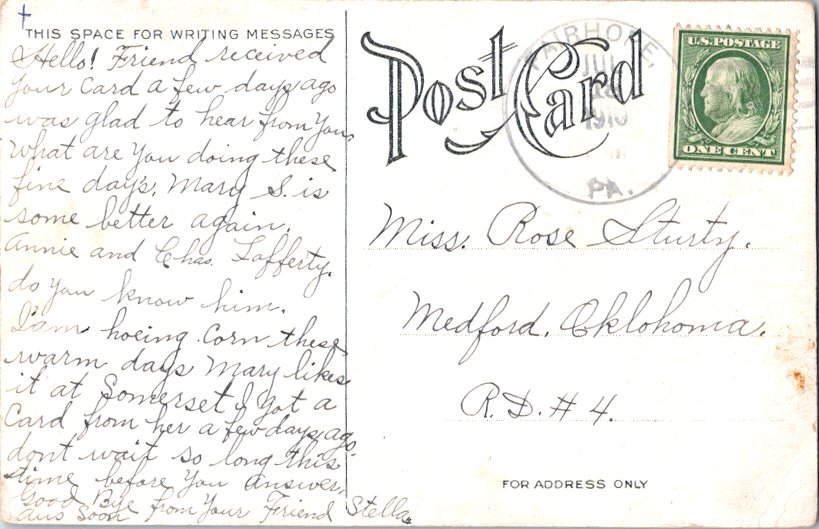 THIS SPACE FOR WRITING MESSAGES
Hello! Friend received
your Card a few days ago
was glad to hear from You,
What are You doing these
fine day's, Mary S. is
some better again.
Annie and Chas. Lafferty.
do You know him.
I'am hoeing Corn these
warm days Mary likes
it at Somerset I got a
Card from her a few days ago.
dont wait so long this
time before You answer.
Good Bye from Your Friend Stella.
ans Soon
Post Card
FAIRHOPE,
JUL
1910
PA.
U.S. POSTAGE
ONE CENT
Miss. Rose Sturty.
Medford. Oklohoma.
R.D. # 4.
FOR ADDRESS ONLY